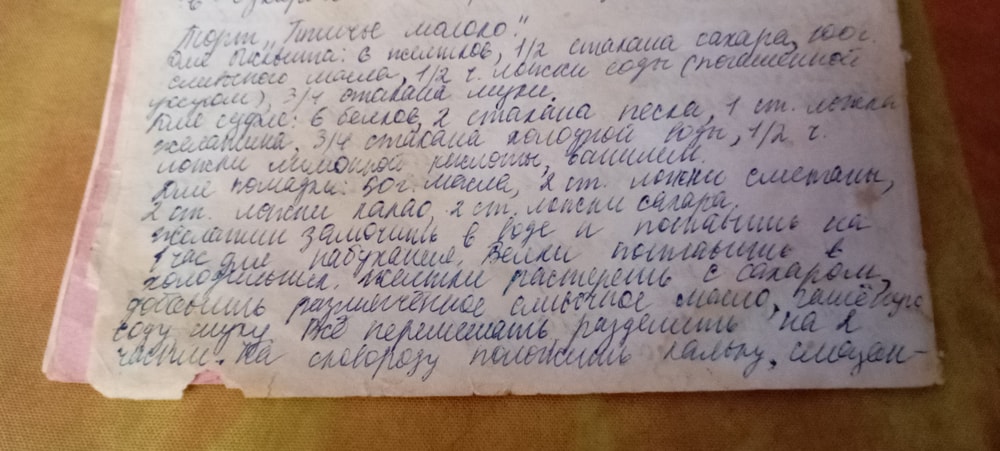 Торт „Птичье молоко".
Для бисквита: 6 желтков, 1/2 стакана сахара, 100г.
сливочного масла, 1/2 ч. ложки соды (погашенной
уксусом), 3/4 стакана муки.
Для суфле: 6 белков, 2 стакана песка, 1 ст. ложка
желатина, 3/4 стакана холодной воды, 1/2 ч.
ложки лимонной кислоты, ванилин.
Для помадки: 50г. масла, 2 ст. ложки сметаны,
2 ст. ложки какао, 2 ст. ложки сахара.
Желатин замочить в воде и поставить на
1 час для набухания. Белки поставить в
холодильник. Желтки растереть с сахаром,
добавить размягчённое сливочное масло,
соду муку. Всё перемешать разделить на 2
части. На сковороду положить кальку, смазан-